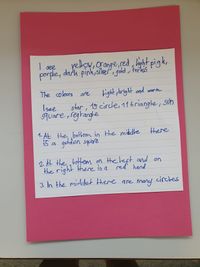 I see yellow, orange, red, light pink,
purple, dark pink, silver, gold,
The colours are light, bright and warm
I see star, circle, 11 triangle,
square, rectangle
1. At the bottom in the middle there
is a golden square
2. At the bottom on the left and on
the right there is a red hand
3. In the there are many circles